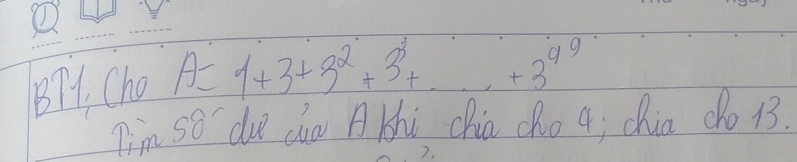 BT1; Cho A = 1+3+3²+3³+.....+3⁹⁹
Tìm số dư của A khi chia cho 4; chia cho 13.